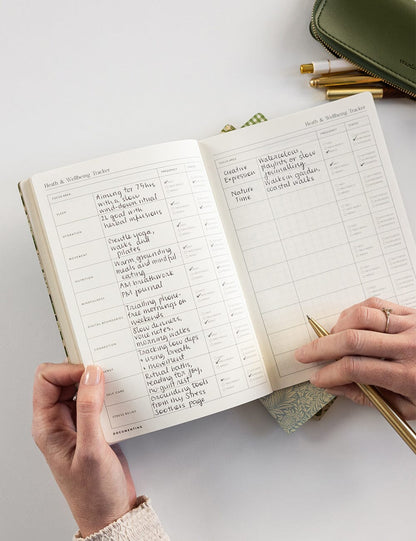 Heath & Wellbeing Tracker
FOCUS AREA
FREQUENCY
STATUS
SLEEP
Aiming for 7.5hrs
with a slow
wind-down ritual
HYDRATION
2L goal with
herbal infusions
MOVEMENT
Gentle yoga,
walks and
pilates
NUTRITION
Warm grounding
meals and mindful
eating
MINDFULNESS
AM breathwork
PM journal
DIGITAL BOUNDARIES
Trialling phone-
free mornings on
weekends
CONNECTION
Slow dinners,
voice notes,
morning walks
Tracking low dips
+ using breath
+ movement
SELF CARE
Ritual baths,
reading for joy,
no guilt rest
STRESS RELIEF
Grounding tools
from my Stress
Soothers page
DOCUMENTING
Heath & Wellbeing Tracker
FOCUS AREA
FREQUENCY
STATUS
Creative
Expression
Watercolour,
playlists or slow
journalling
Nature
Time
Walks in garden,
coastal walks